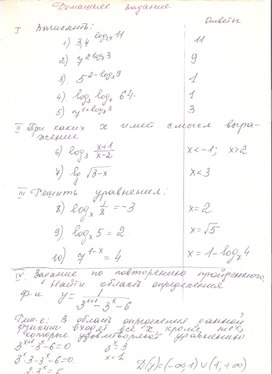 Домашнее задание
Ответы
I Вычислить:
1) 3,4^log₃,₄ 11 11
2) 7^2log₇3 9
3) 5^2-log₅9
4) log₃ log₄ 64 1
5) 3
II При каких x имеет смысл выра-
жение
6) log₃ (x+1)/(x-2) x<-1; x>2
7) lg √(3-x) x<3
III Решить уравнения:
8) logₓ 1/8 = -3 x=2
9) logₓ 5 = 2 x=√5
10) 7^(1-x) = 4 x=1-log₇4
IV Задание по повторению пройденного
Найти область определения
ф-и y = 1/(3^(x+1)-3^x-6)
Реш-е: В область определения данной
функции входят все x кроме тех,
которые удовлетворяют уравнению
3^(x+1)-3^x-6=0 3^x=3
3^x·3-3^x-6=0 x=1
2·3^x=6 D(y)=(-∞;1)∪(1;+∞)